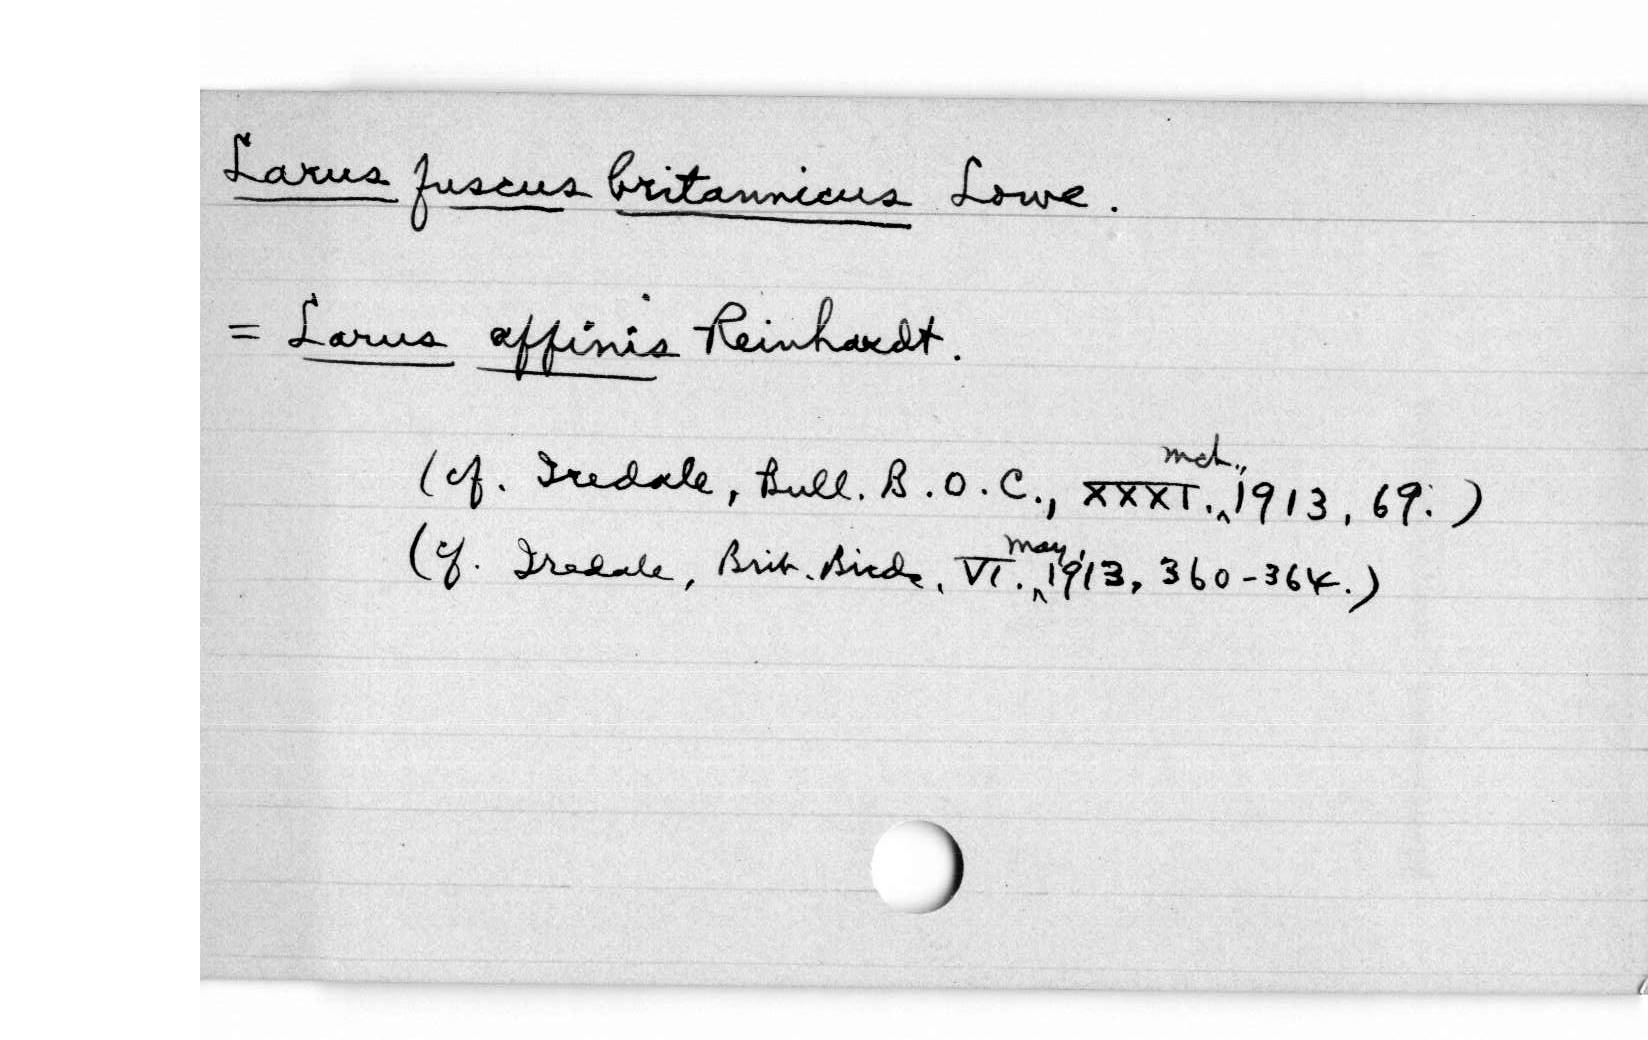 Larus fuscus britannicus Lowe.
= Larus affinis Reinhardt.
(cf. Iredale, Bull. B.O.C., XXXI. Mch., 1913, 69.)
(cf. Iredale, Brit. Birds, VI. May, 1913, 360-364.)